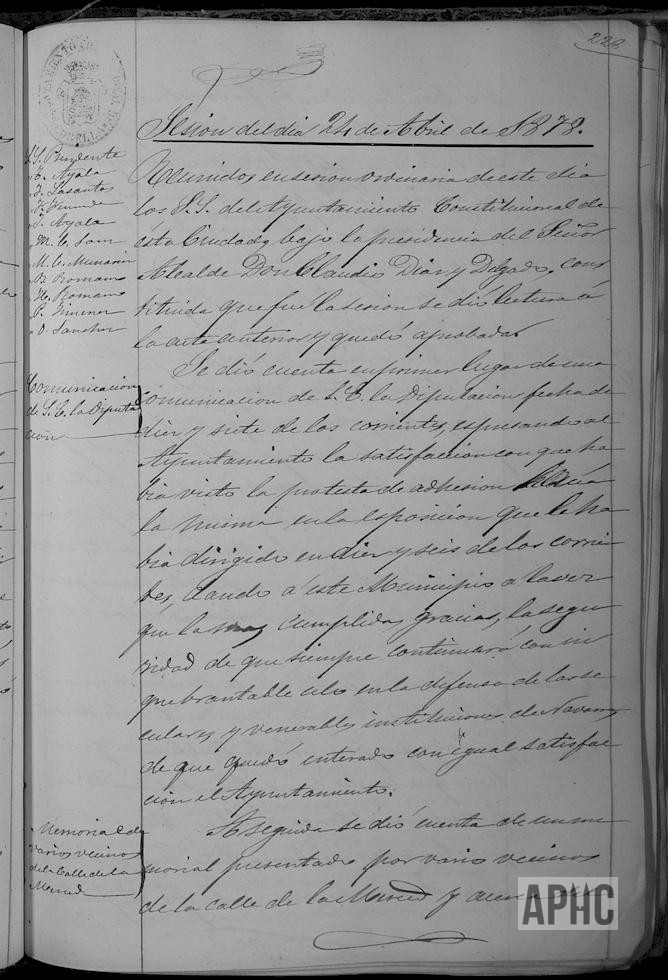 226
Sesion del dia 24 de Abril de 1878.
S.S. Presidente
" Ayala
" Ayala
" Romano
" Romano
" Jimenez
" Sanchez
Reunidos en sesion ordinaria de este dia
los S.S. del Ayuntamiento Constitucional de
ésta Ciudad, bajo la presidencia del Señor
Alcalde Don Claudio Diaz y Delgado, cons
tituida que fué la sesion se dió lectura á
la acta anterior y quedó aprobada.
Comunicacion
de S. E. la Diputa
cion
Se dió cuenta en primer lugar de una
comunicacion de S. E. la Diputacion fecha de
diez y siete de los corrientes, espresando al
Ayuntamiento la satisfaccion con que ha
bia visto la protesta de adhesion hácia
la misma en la esposicion que le ha
bia dirigido en diez y seis de los corrien
tes, dando á éste Municipio á la vez
que las mas cumplidas gracias, la segu
ridad de que siempre continuará con in
quebrantable celo en la defensa de las se
culares y venerables instituciones de Navarra,
de que quedó enterado con igual satisfac
cion el Ayuntamiento.
Memorial de
varios vecinos
de la Calle de la
Merced
A seguida se dió cuenta de un me
morial presentado por vario vecinos
de la calle de la Merced y
APHC